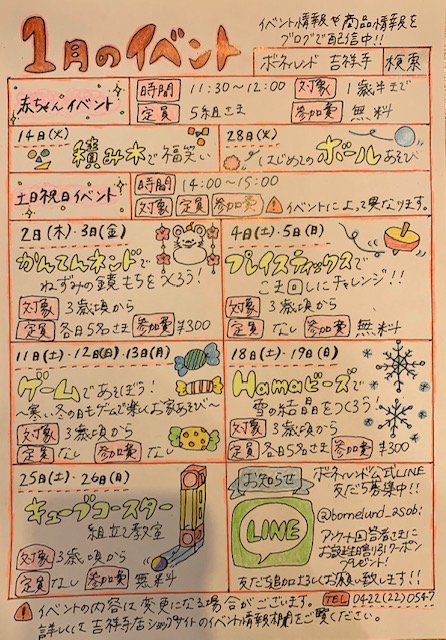 1月のイベント
イベント情報や商品情報を
ブログで配信中!!
ボーネルンド 吉祥寺 検索
赤ちゃんイベント
時間 11:30〜12:00 対象 1歳半まで
定員 5組さま 参加費 無料
14日(火)
積み木で福笑い
28日(火)
はじめてのボールあそび
土日祝日イベント
時間 14:00〜15:00
対象 定員 参加費 イベントによって異なります。
2日(木)・3日(金)
かんてんネンドで
ねずみの鏡もちをつくろう!
対象 3歳頃から
定員 各日5名さま 参加費 ¥300
4日(土)・5日(日)
プレイスティックスで
こま回しにチャレンジ!!
対象 3歳頃から
定員 なし 参加費 無料
11日(土)・12日(日)・13日(月)
ゲームであそぼう!
〜寒い冬の日もゲームで楽しくお家あそび〜
対象 3歳頃から
定員 なし 参加費 なし
18日(土)・19日(日)
Hamaビーズで
雪の結晶をつくろう!
対象 3歳頃から
定員 各日5名さま 参加費 ¥300
25日(土)・26日(日)
キューブコースター
組立て教室
対象 3歳頃から
定員 なし 参加費 無料
お知らせ
ボーネルンド公式LINE
友だち募集中!!
LINE
@bornelund_asobi
アンケート回答者さまに
お誕生日割引クーポン
プレゼント!
友だち追加よろしくお願い致します!!
イベントの内容は変更になる場合がございます。 TEL 0422(22)0547
詳しくは吉祥寺店ショップサイトのイベント情報欄をご覧ください。